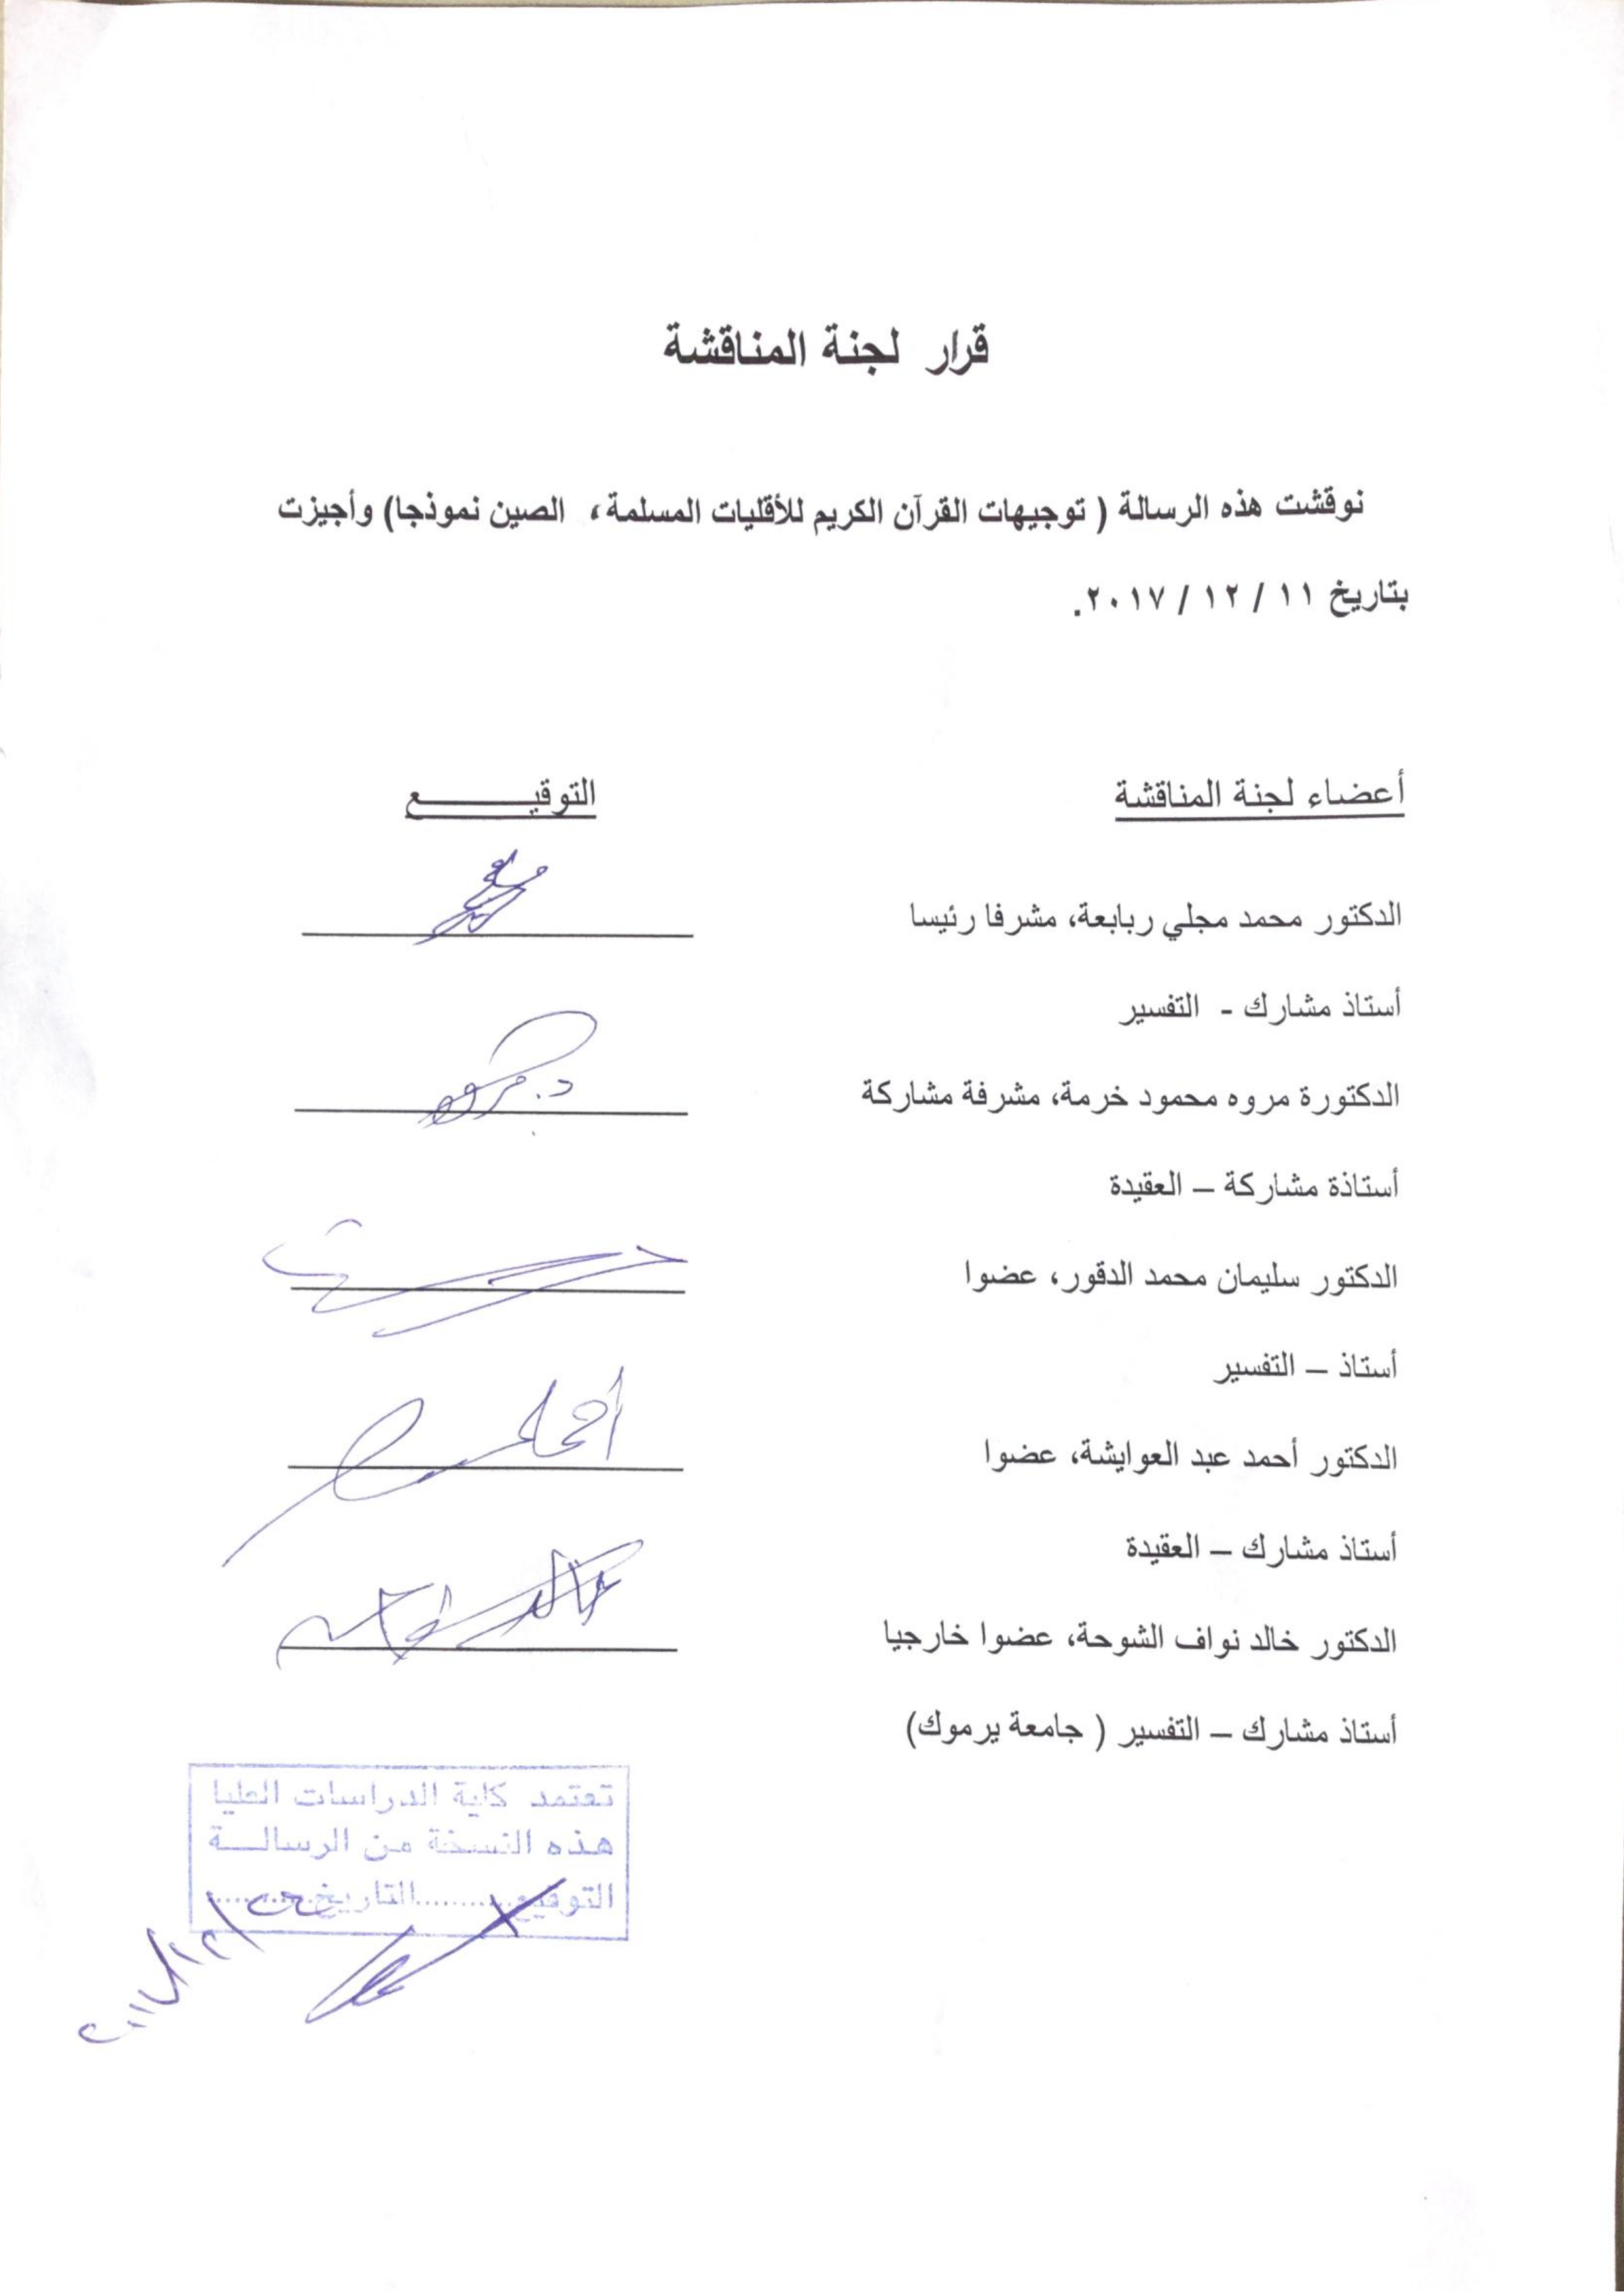 قرار لجنة المناقشة
نوقشت هذه الرسالة ( توجيهات القرآن الكريم للأقليات المسلمة، الصين نموذجا) وأجيزت
بتاريخ ١١ / ١٢ / ٢٠١٧.
أعضاء لجنة المناقشة
التوقيــــــــــع
الدكتور محمد مجلي ربابعة، مشرفا رئيسا
أستاذ مشارك - التفسير
الدكتورة مروه محمود خرمة، مشرفة مشاركة
د. مروه
أستاذة مشاركة – العقيدة
الدكتور سليمان محمد الدقور، عضوا
أستاذ – التفسير
الدكتور أحمد عبد العوايشة، عضوا
أستاذ مشارك – العقيدة
الدكتور خالد نواف الشوحة، عضوا خارجيا
أستاذ مشارك – التفسير ( جامعة يرموك)
تعتمد كلية الدراسات العليا
هذه النسخة من الرسالــة
التوقيع..........التاريخ..........